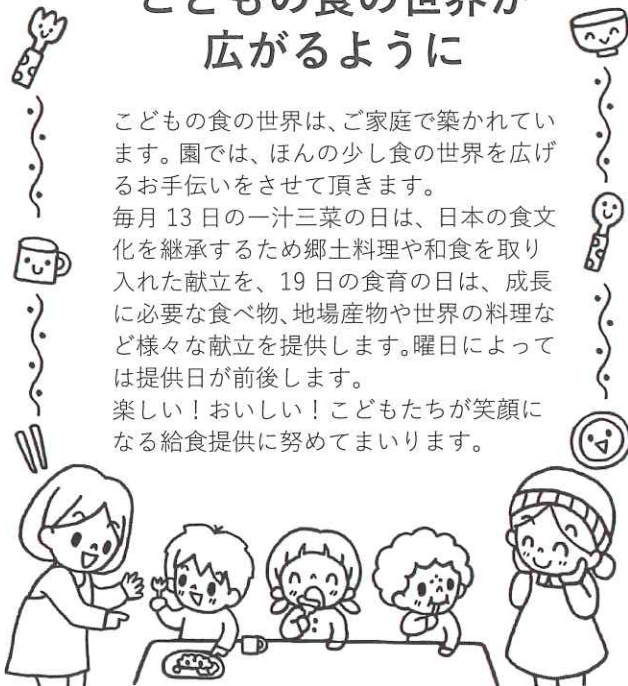 こどもの食の世界が
広がるように
こどもの食の世界は、ご家庭で築かれてい
ます。園では、ほんの少し食の世界を広げ
るお手伝いをさせて頂きます。
毎月 13 日の一汁三菜の日は、日本の食文
化を継承するため郷土料理や和食を取り
入れた献立を、19 日の食育の日は、成長
に必要な食べ物、地場産物や世界の料理な
ど様々な献立を提供します。曜日によって
は提供日が前後します。
楽しい！おいしい！こどもたちが笑顔に
なる給食提供に努めてまいります。